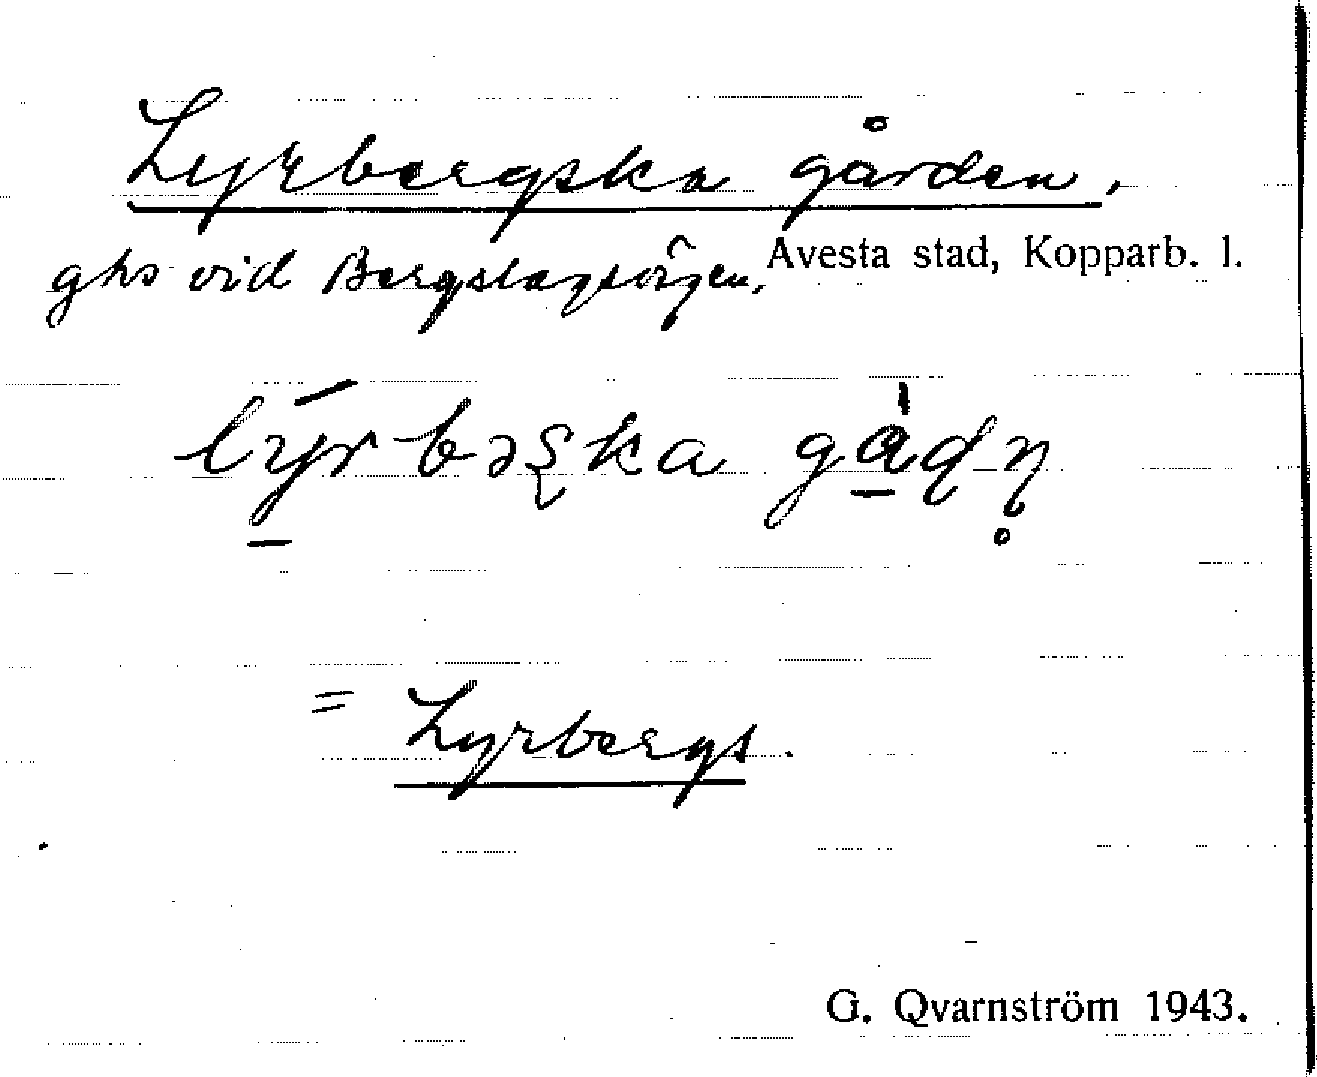 Lyrbergska gården,
ghs vid Bergslagsvägen, Avesta stad, Kopparb. l.
= Lyrbergs.
G. Qvarnström 1943.